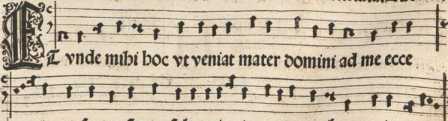 ET vnde mihi hoc vt veniat mater domini ad me ecce